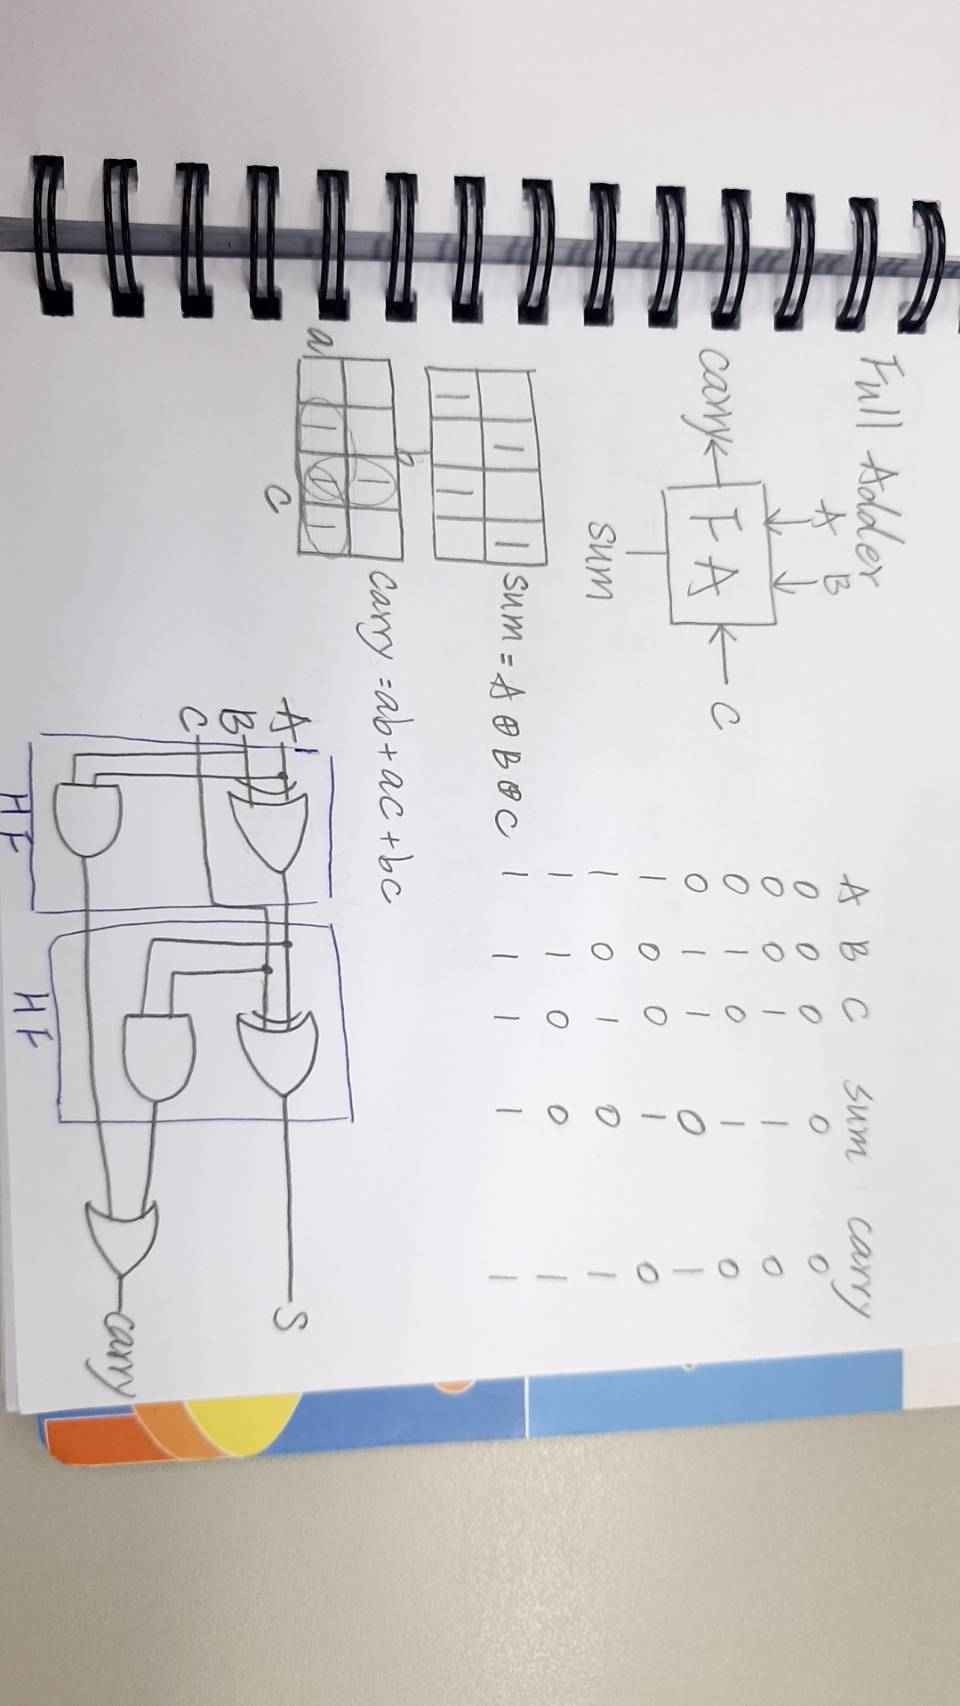 Full Adder
A B
carry FA C
sum
A B C sum carry
0 0 0 0 0
0 0 1 1 0
0 1 0 1 0
0 1 1 0 1
1 0 0 1 0
1 0 1 0 1
1 1 0 0 1
1 1 1 1 1
1 1
1 1
sum = A ⊕ B ⊕ C
b
1
a 1 1 1
c
carry = ab + ac + bc
A
B
C
S
carry
HF
HF